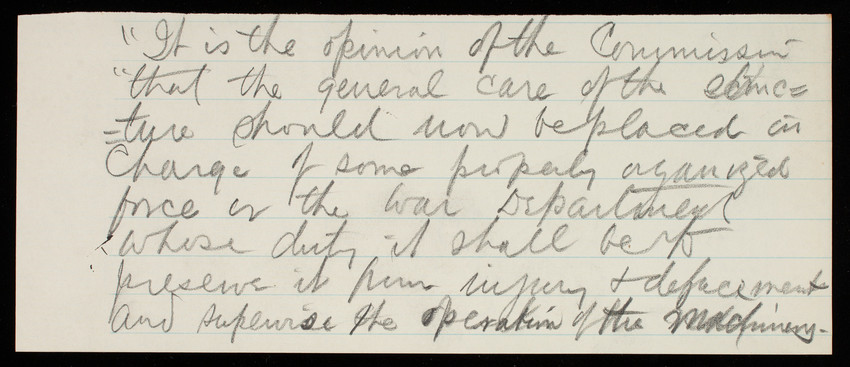 "It is the opinion of the Commission
"that the general care of the struc=
=ture should now be placed in
Charge of some properly organized
force or the War Department
whose duty it shall be to
preserve it from injury & defacement
and supervise the operation of the machinery.